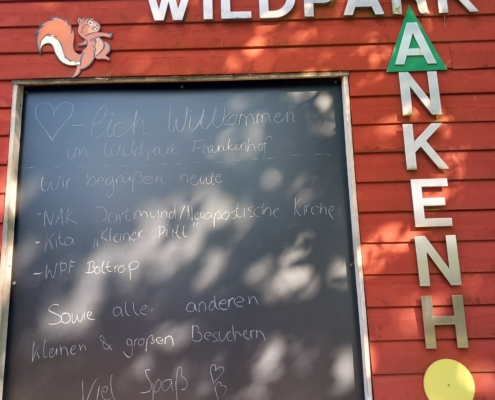 WILDPARK
FRANKENHO
♡-lich Willkommen
im Wildpark Frankenhof
Wir begrüßen heute
-NAK Dortmund/Neuapostische Kirche
- Kita „Kleiner Pütt"
-WPF Bottrop
Sowie alle anderen
kleinen & großen Besuchern
Viel Spaß